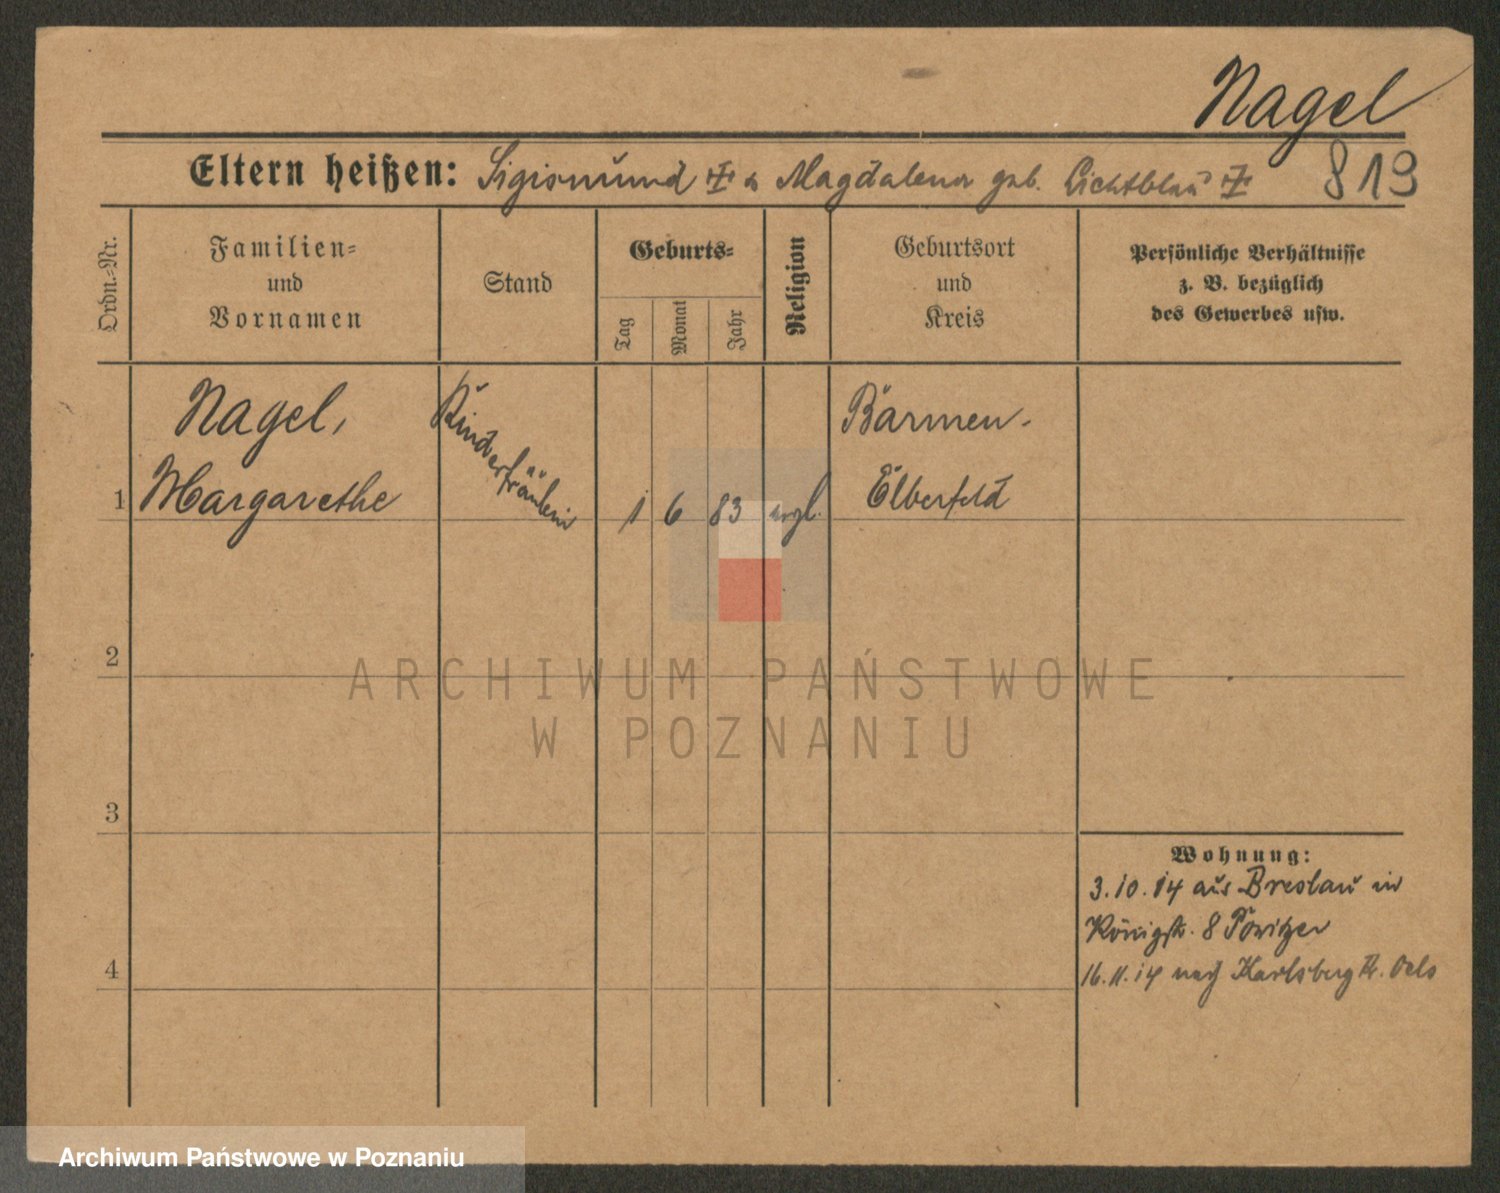 Nagel
Eltern heißen: Sigismund & Magdalena geb. Lichtblau
819
Ordn.=Nr.
Familien=
und
Vornamen
Stand
Geburts=
Tag
Monat
Jahr
Religion
Geburtsort
und
Kreis
Persönliche Verhältnisse
z. B. bezüglich
des Gewerbes usw.
Nagel,
Kinderfräulein
Barmen-
1 Margarethe
1 6 83
Elberfeld
2
3
4
Wohnung:
3.10.14 aus Breslau in
Königstr. 8
16.11.14 nach Karlsberg Kr. Oels
ARCHIWUM PAŃSTWOWE
W POZNANIU
Archiwum Państwowe w Poznaniu